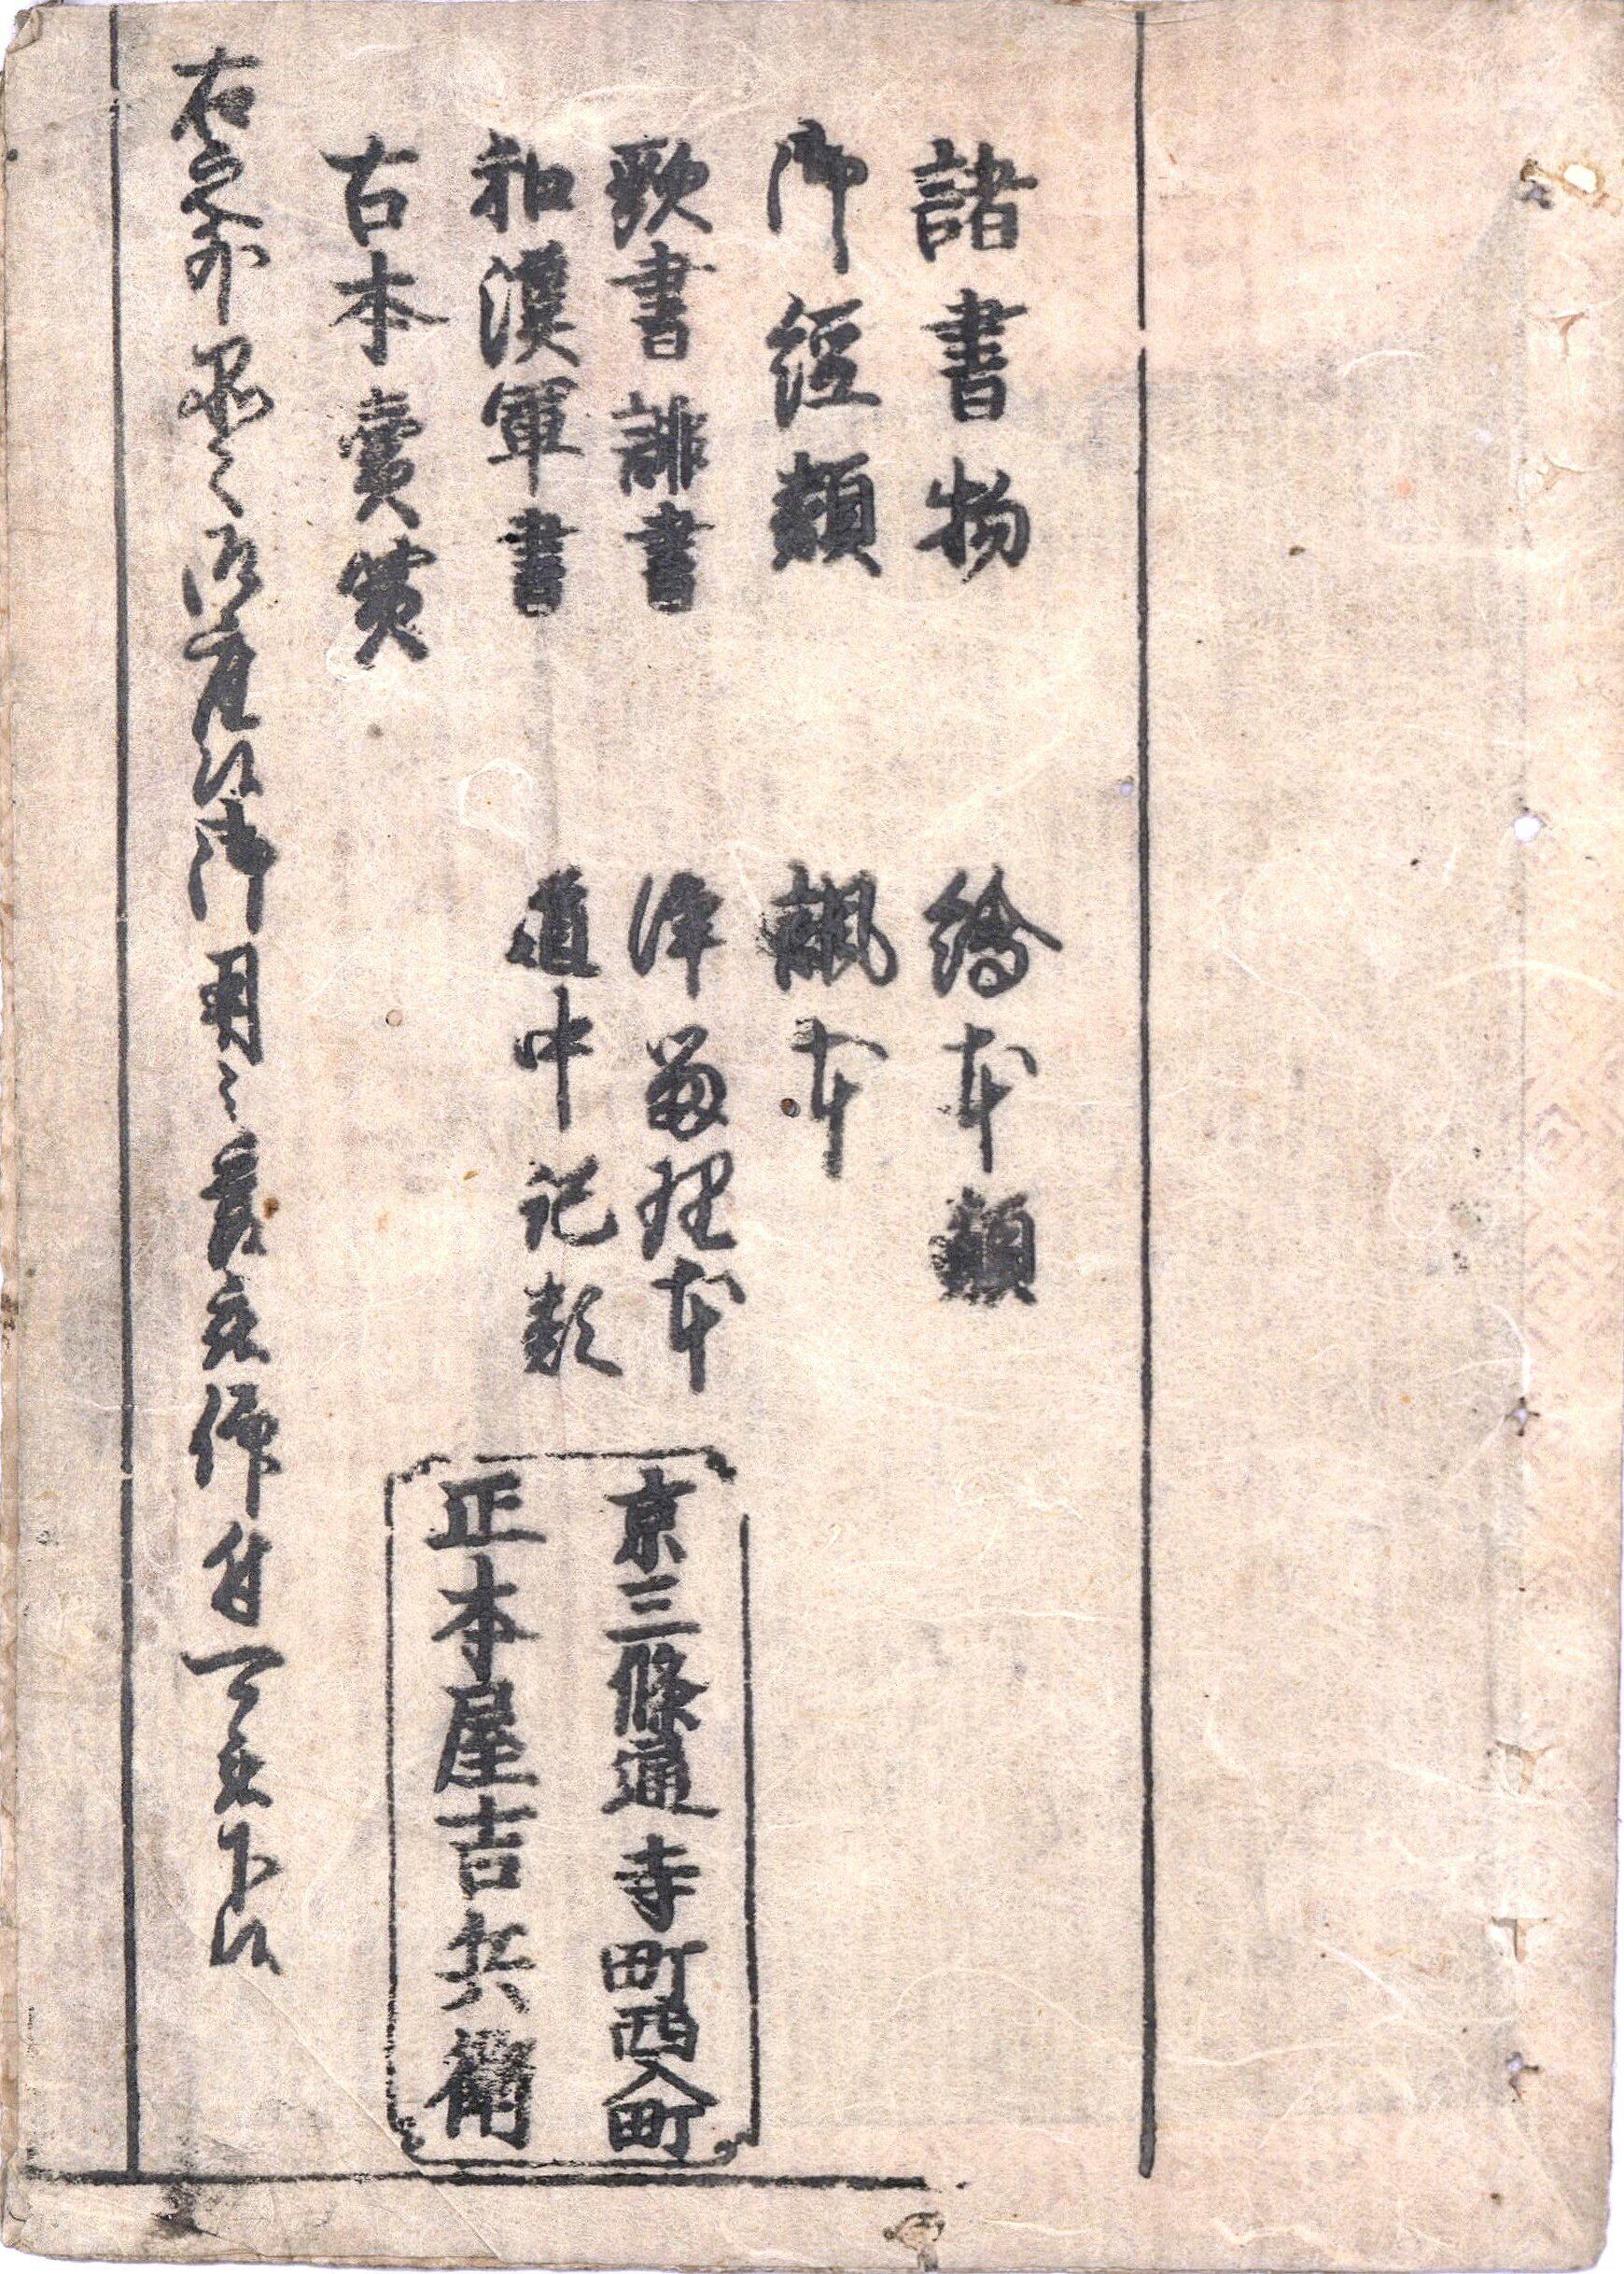 諸書物
御經類
歌書誹書
和漢軍書
古本賣買
繪本類
諷本
浄留理本
道中記類
京三條通寺町西入町
正本屋吉兵衛
右之外品々御座候御用之義被仰付可被下候